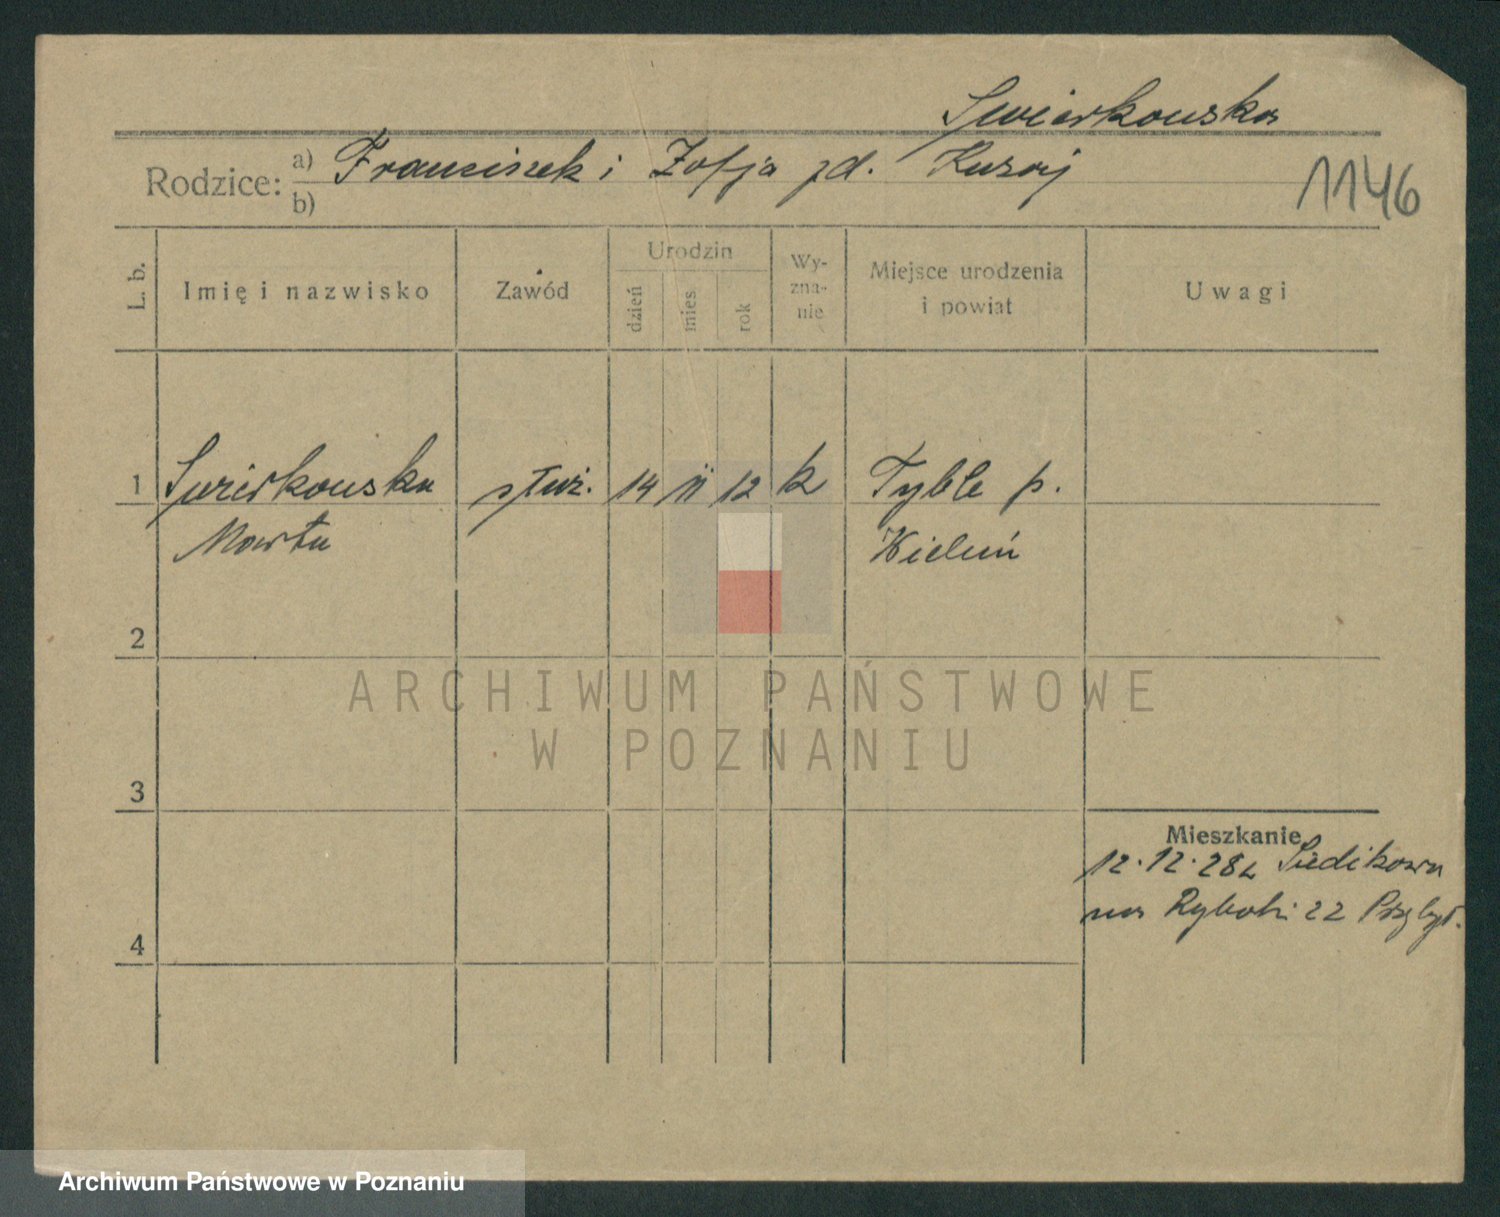 Swierkowska
Rodzice: a) Franciszek i Zofja zd. Kuraj
b)
1146
L. b. Imię i nazwisko Zawód Urodzin dzień mies rok Wy-zna-nie Miejsce urodzenia i powiat Uwagi
1 Swierkowska służ. 14 II 12 k Tyble p.
Marta Wieluń
2
ARCHIWUM PAŃSTWOWE
W POZNANIU
3
Mieszkanie
12.12.28 z
na Rybaki 22 Przybył.
4
Archiwum Państwowe w Poznaniu